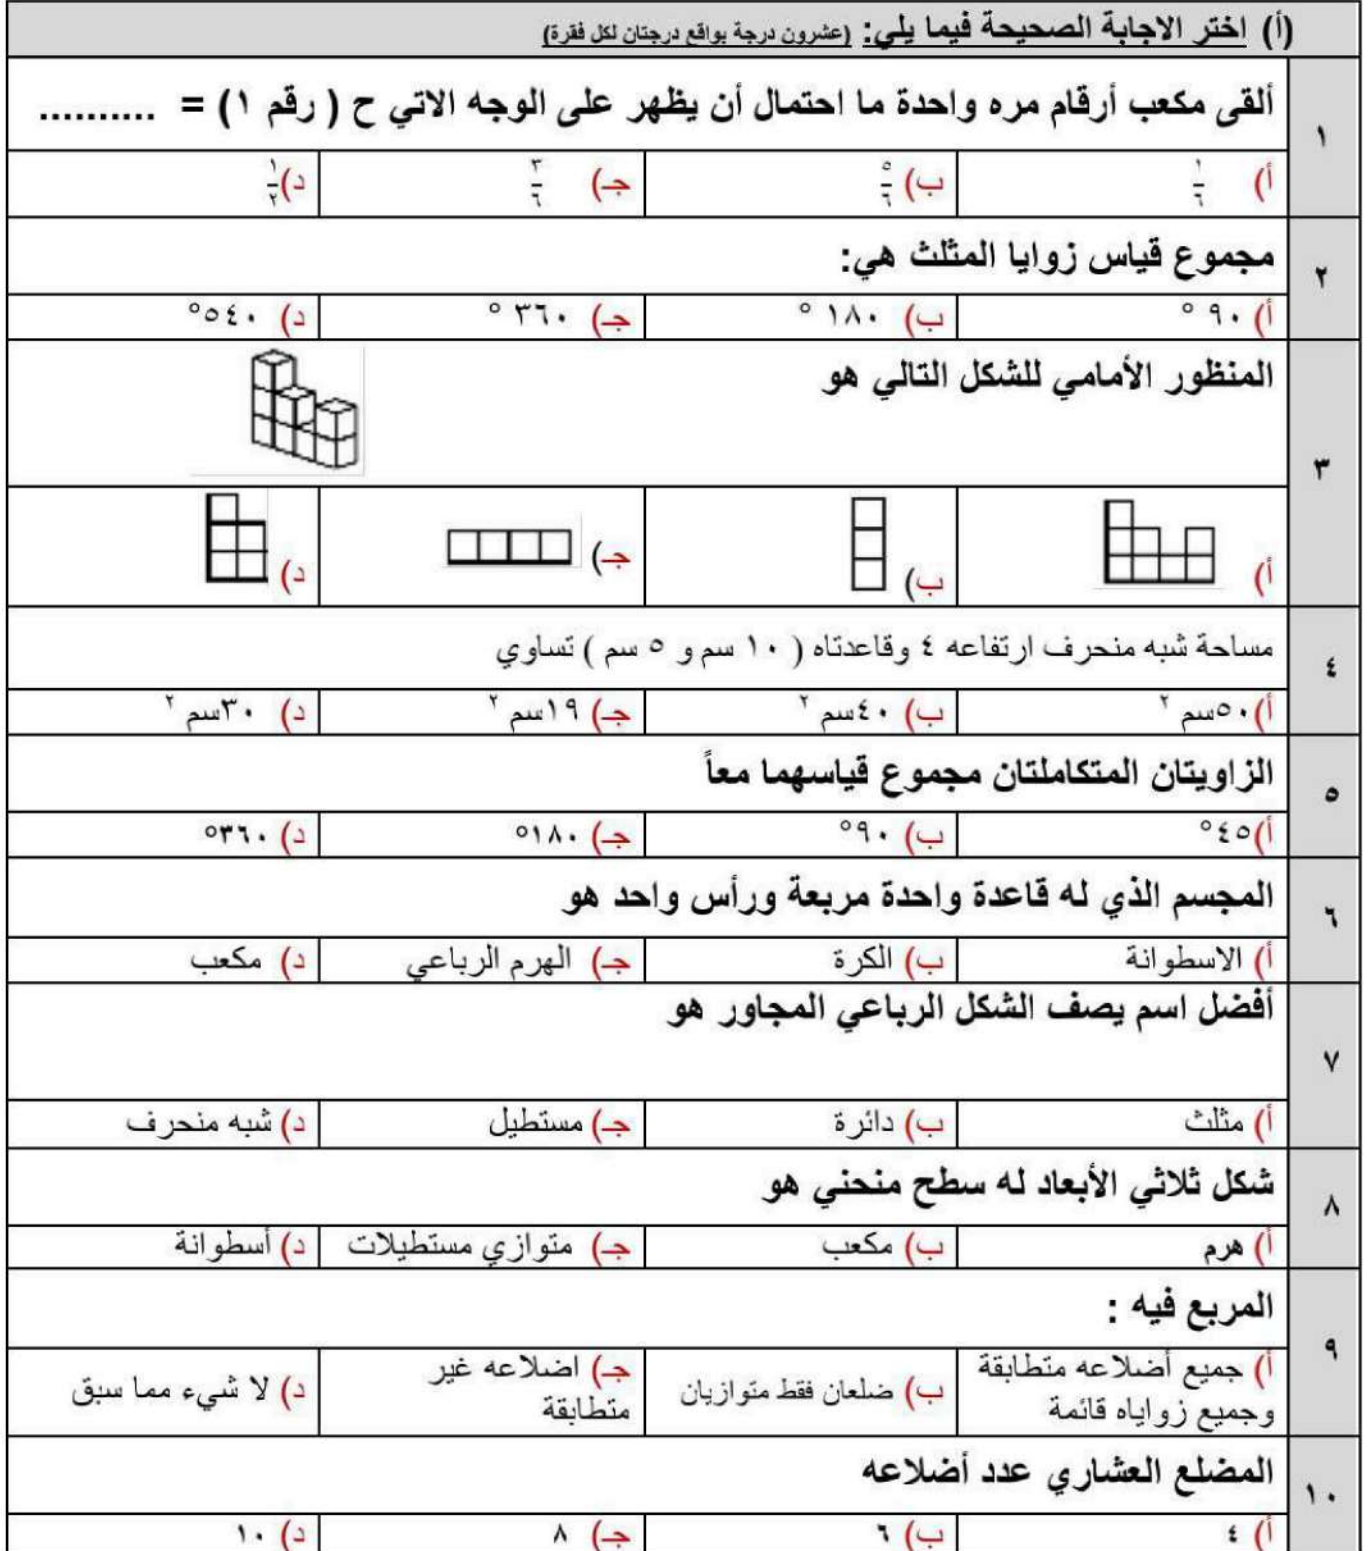 (أ) اختر الاجابة الصحيحة فيما يلي: (عشرون درجة بواقع درجتان لكل فقرة)
١
ألقى مكعب أرقام مره واحدة ما احتمال أن يظهر على الوجه الاتي ح ( رقم ١ ) = ..........
أ) ١/٦ ب) ٥/٦ جـ) ٣/٦ د) ١/٢
٢
مجموع قياس زوايا المثلث هي:
أ) ٩٠ ° ب) ١٨٠ ° جـ) ٣٦٠ ° د) ٥٤٠°
٣
المنظور الأمامي للشكل التالي هو
أ) ب) جـ) د)
٤
مساحة شبه منحرف ارتفاعه ٤ وقاعدتاه ( ١٠ سم و ٥ سم ) تساوي
أ) ٥٠سم ٢ ب) ٤٠سم ٢ جـ) ١٩سم ٢ د) ٣٠سم ٢
٥
الزاويتان المتكاملتان مجموع قياسهما معاً
أ) ٤٥° ب) ٩٠° جـ) ١٨٠° د) ٣٦٠°
٦
المجسم الذي له قاعدة واحدة مربعة ورأس واحد هو
أ) الاسطوانة ب) الكرة جـ) الهرم الرباعي د) مكعب
٧
أفضل اسم يصف الشكل الرباعي المجاور هو
أ) مثلث ب) دائرة جـ) مستطيل د) شبه منحرف
٨
شكل ثلاثي الأبعاد له سطح منحني هو
أ) هرم ب) مكعب جـ) متوازي مستطيلات د) أسطوانة
٩
المربع فيه :
أ) جميع أضلاعه متطابقة
وجميع زواياه قائمة
ب) ضلعان فقط متوازيان
جـ) اضلاعه غير
متطابقة
د) لا شيء مما سبق
١٠
المضلع العشاري عدد أضلاعه
أ) ٤ ب) ٦ جـ) ٨ د) ١٠